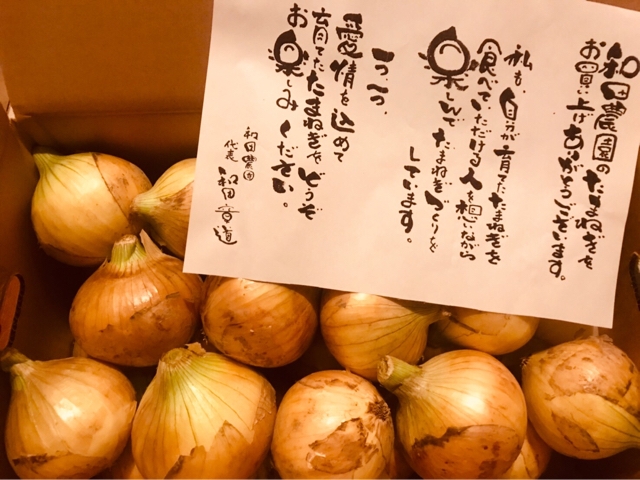 和田農園のたまねぎを
お買い上げありがとうございます。
私も、自分が育てたたまねぎを
食べていただける人を想いながら
楽しんでたまねぎづくりを
しています。
一つ一つ、
愛情を込めて
育てたたまねぎをどうぞ
お楽しみください。
和田農園
代表 和田 音道